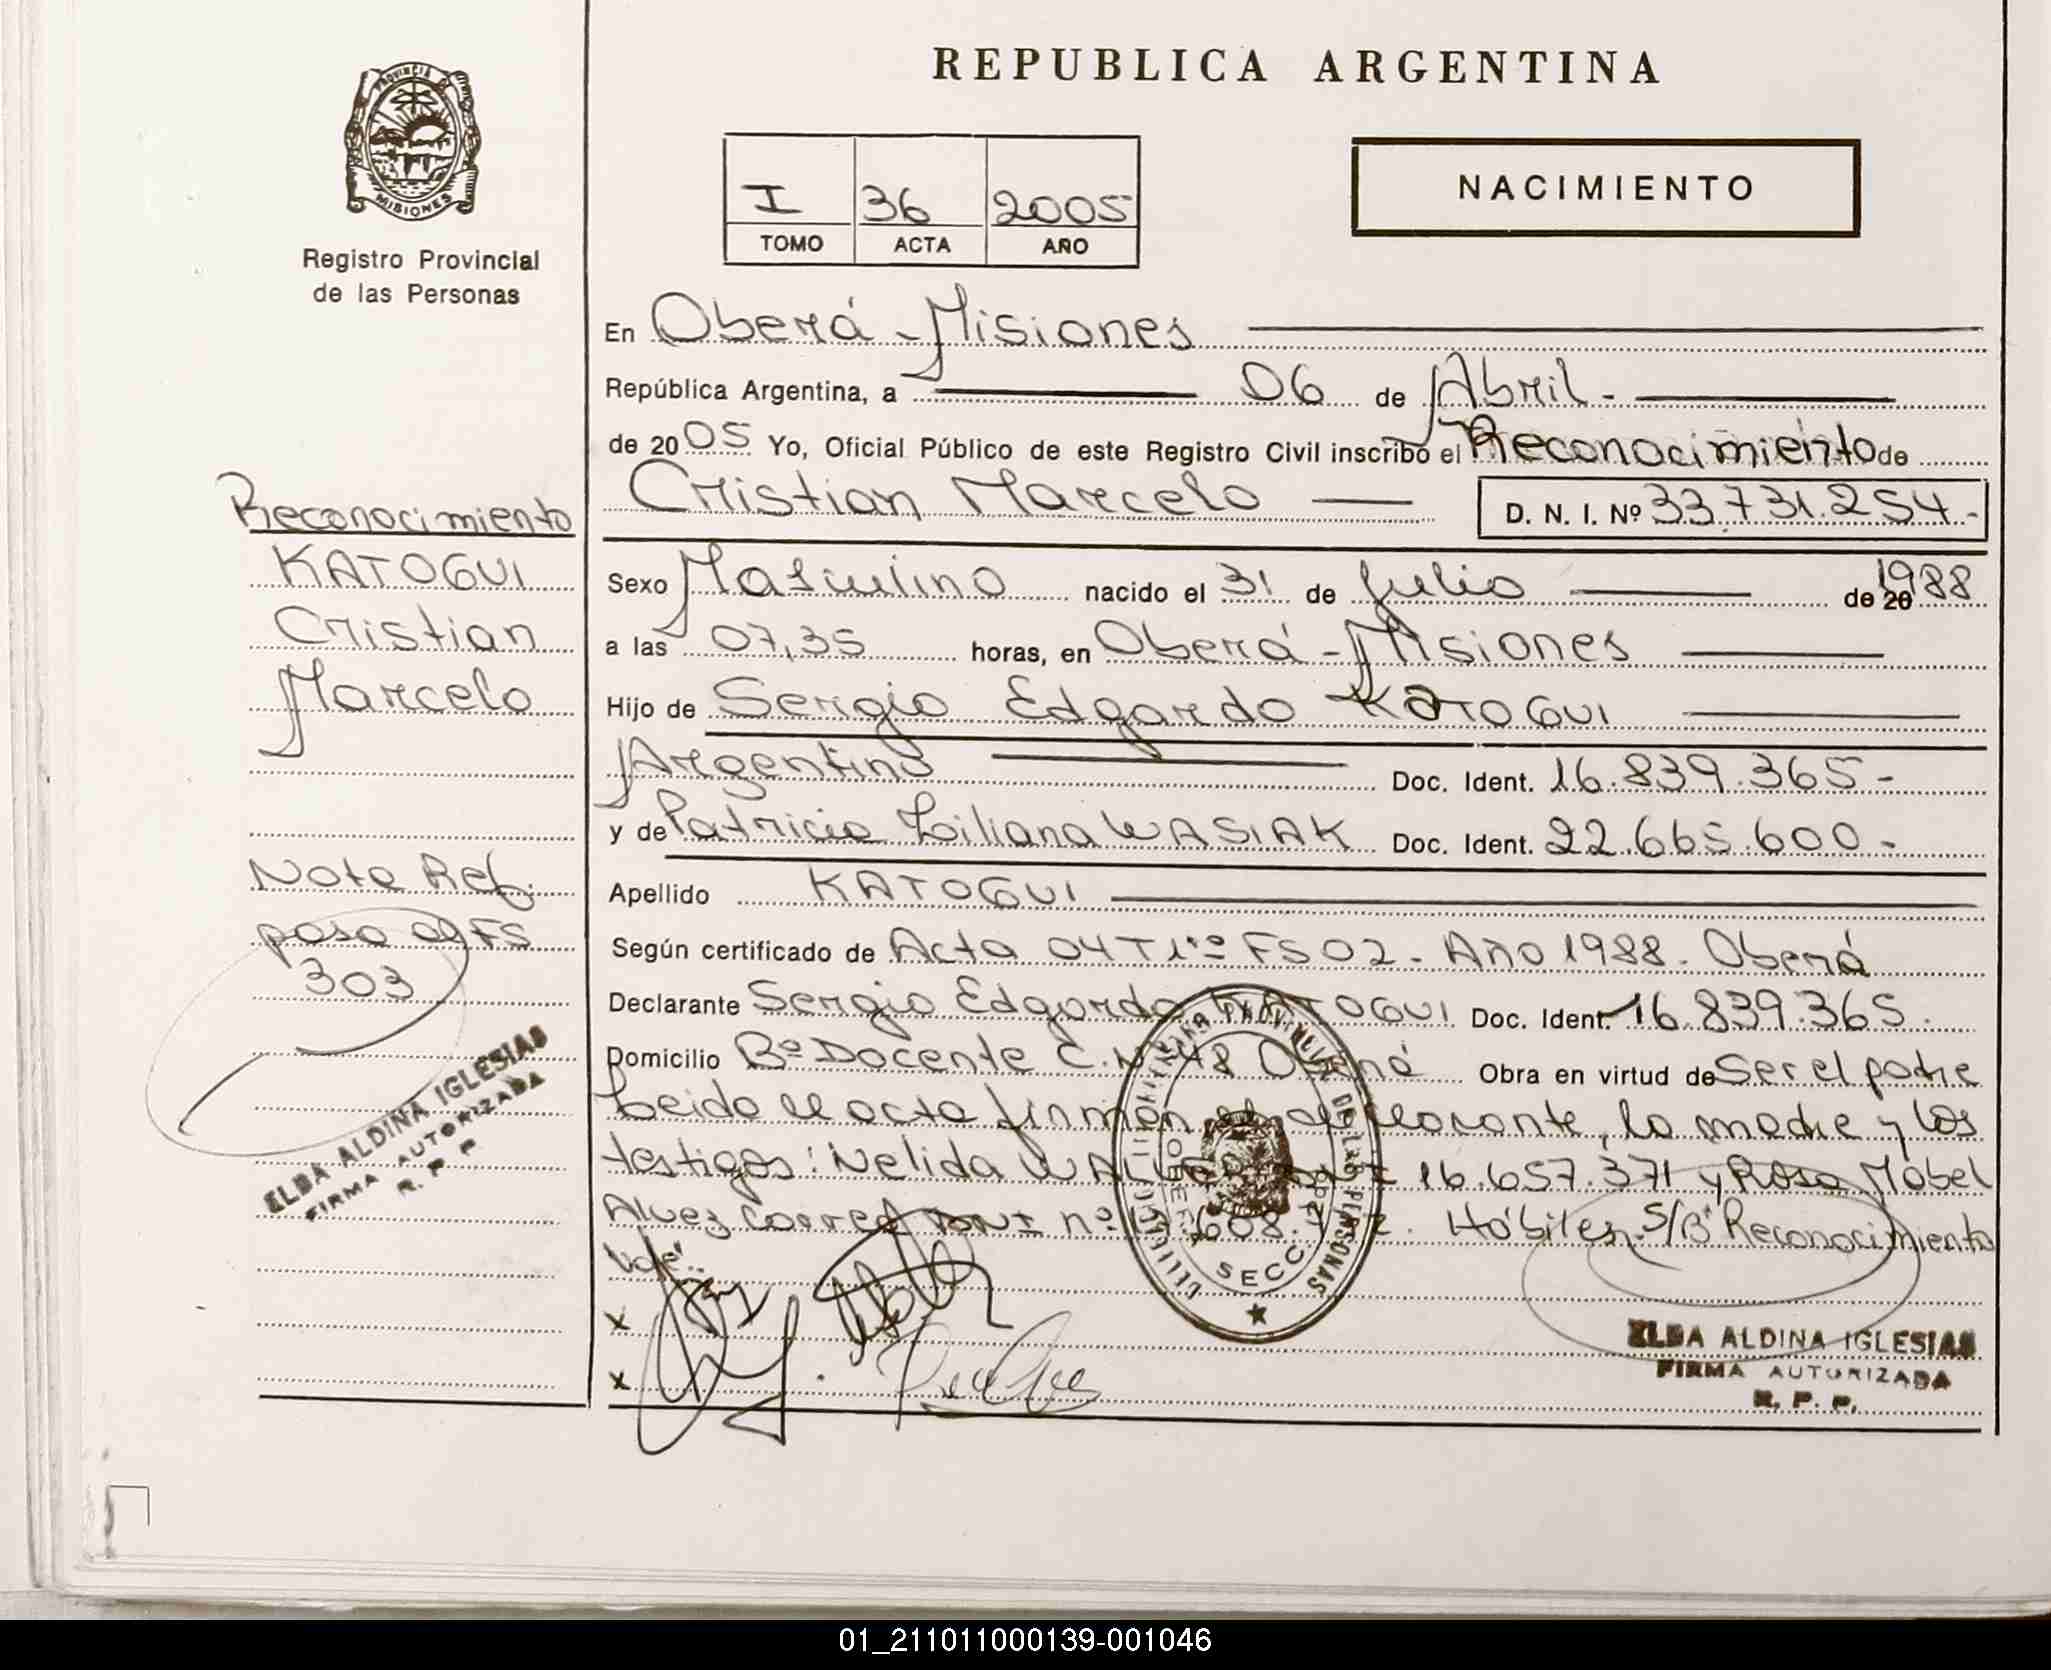 REPUBLICA ARGENTINA
PROVINCIA
MISIONES
Registro Provincial
de las Personas
I 36 2005
TOMO ACTA AÑO
NACIMIENTO
En Oberá - Misiones
República Argentina, a 06 de Abril -
de 2005 Yo, Oficial Público de este Registro Civil inscribo el Reconocimiento de
Cristian Marcelo D. N. I. Nº 33.731.254.-
Sexo Masculino nacido el 31 de Julio de 20 1988
a las 07,35 horas, en Oberá - Misiones
Hijo de Sergio Edgardo KATOGUI
Argentino Doc. Ident. 16.839.365-
y de Patricia Liliana WASIAK Doc. Ident. 22.665.600-
Apellido KATOGUI
Según certificado de Acta 04 T 1º FS 02 - Año 1988 - Oberá
Declarante Sergio Edgardo KATOGUI Doc. Ident. 16.839.365.
Domicilio Bº Docente C. Nº 48 Oberá Obra en virtud de Ser el padre
Leida el acta firman el declarante, la madre y los
testigos: Nelida 16.657.371 y Rosa Mabel
Alvez Correa DNI nº 608. Hábiles. S/B Reconocimiento
Vale.
X
X
SECC
ELBA ALDINA IGLESIAS
FIRMA AUTORIZADA
R. P. P.
Reconocimiento
KATOGUI
Cristian
Marcelo
Nota Ref.
paso ag FS
303
ELBA ALDINA IGLESIAS
FIRMA AUTORIZADA
R. P. P
01_211011000139-001046